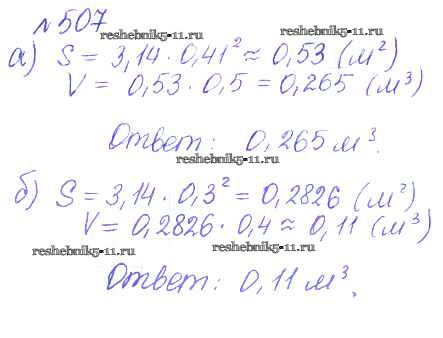 №507
reshebnik5-11.ru
reshebnik5-11.ru
а) S = 3,14 · 0,41² ≈ 0,53 (м²)
V = 0,53 · 0,5 = 0,265 (м³)
Ответ: 0,265 м³.
reshebnik5-11.ru
б) S = 3,14 · 0,3² = 0,2826 (м²)
V = 0,2826 · 0,4 ≈ 0,11 (м³)
reshebnik5-11.ru
reshebnik5-11.ru
Ответ: 0,11 м³.